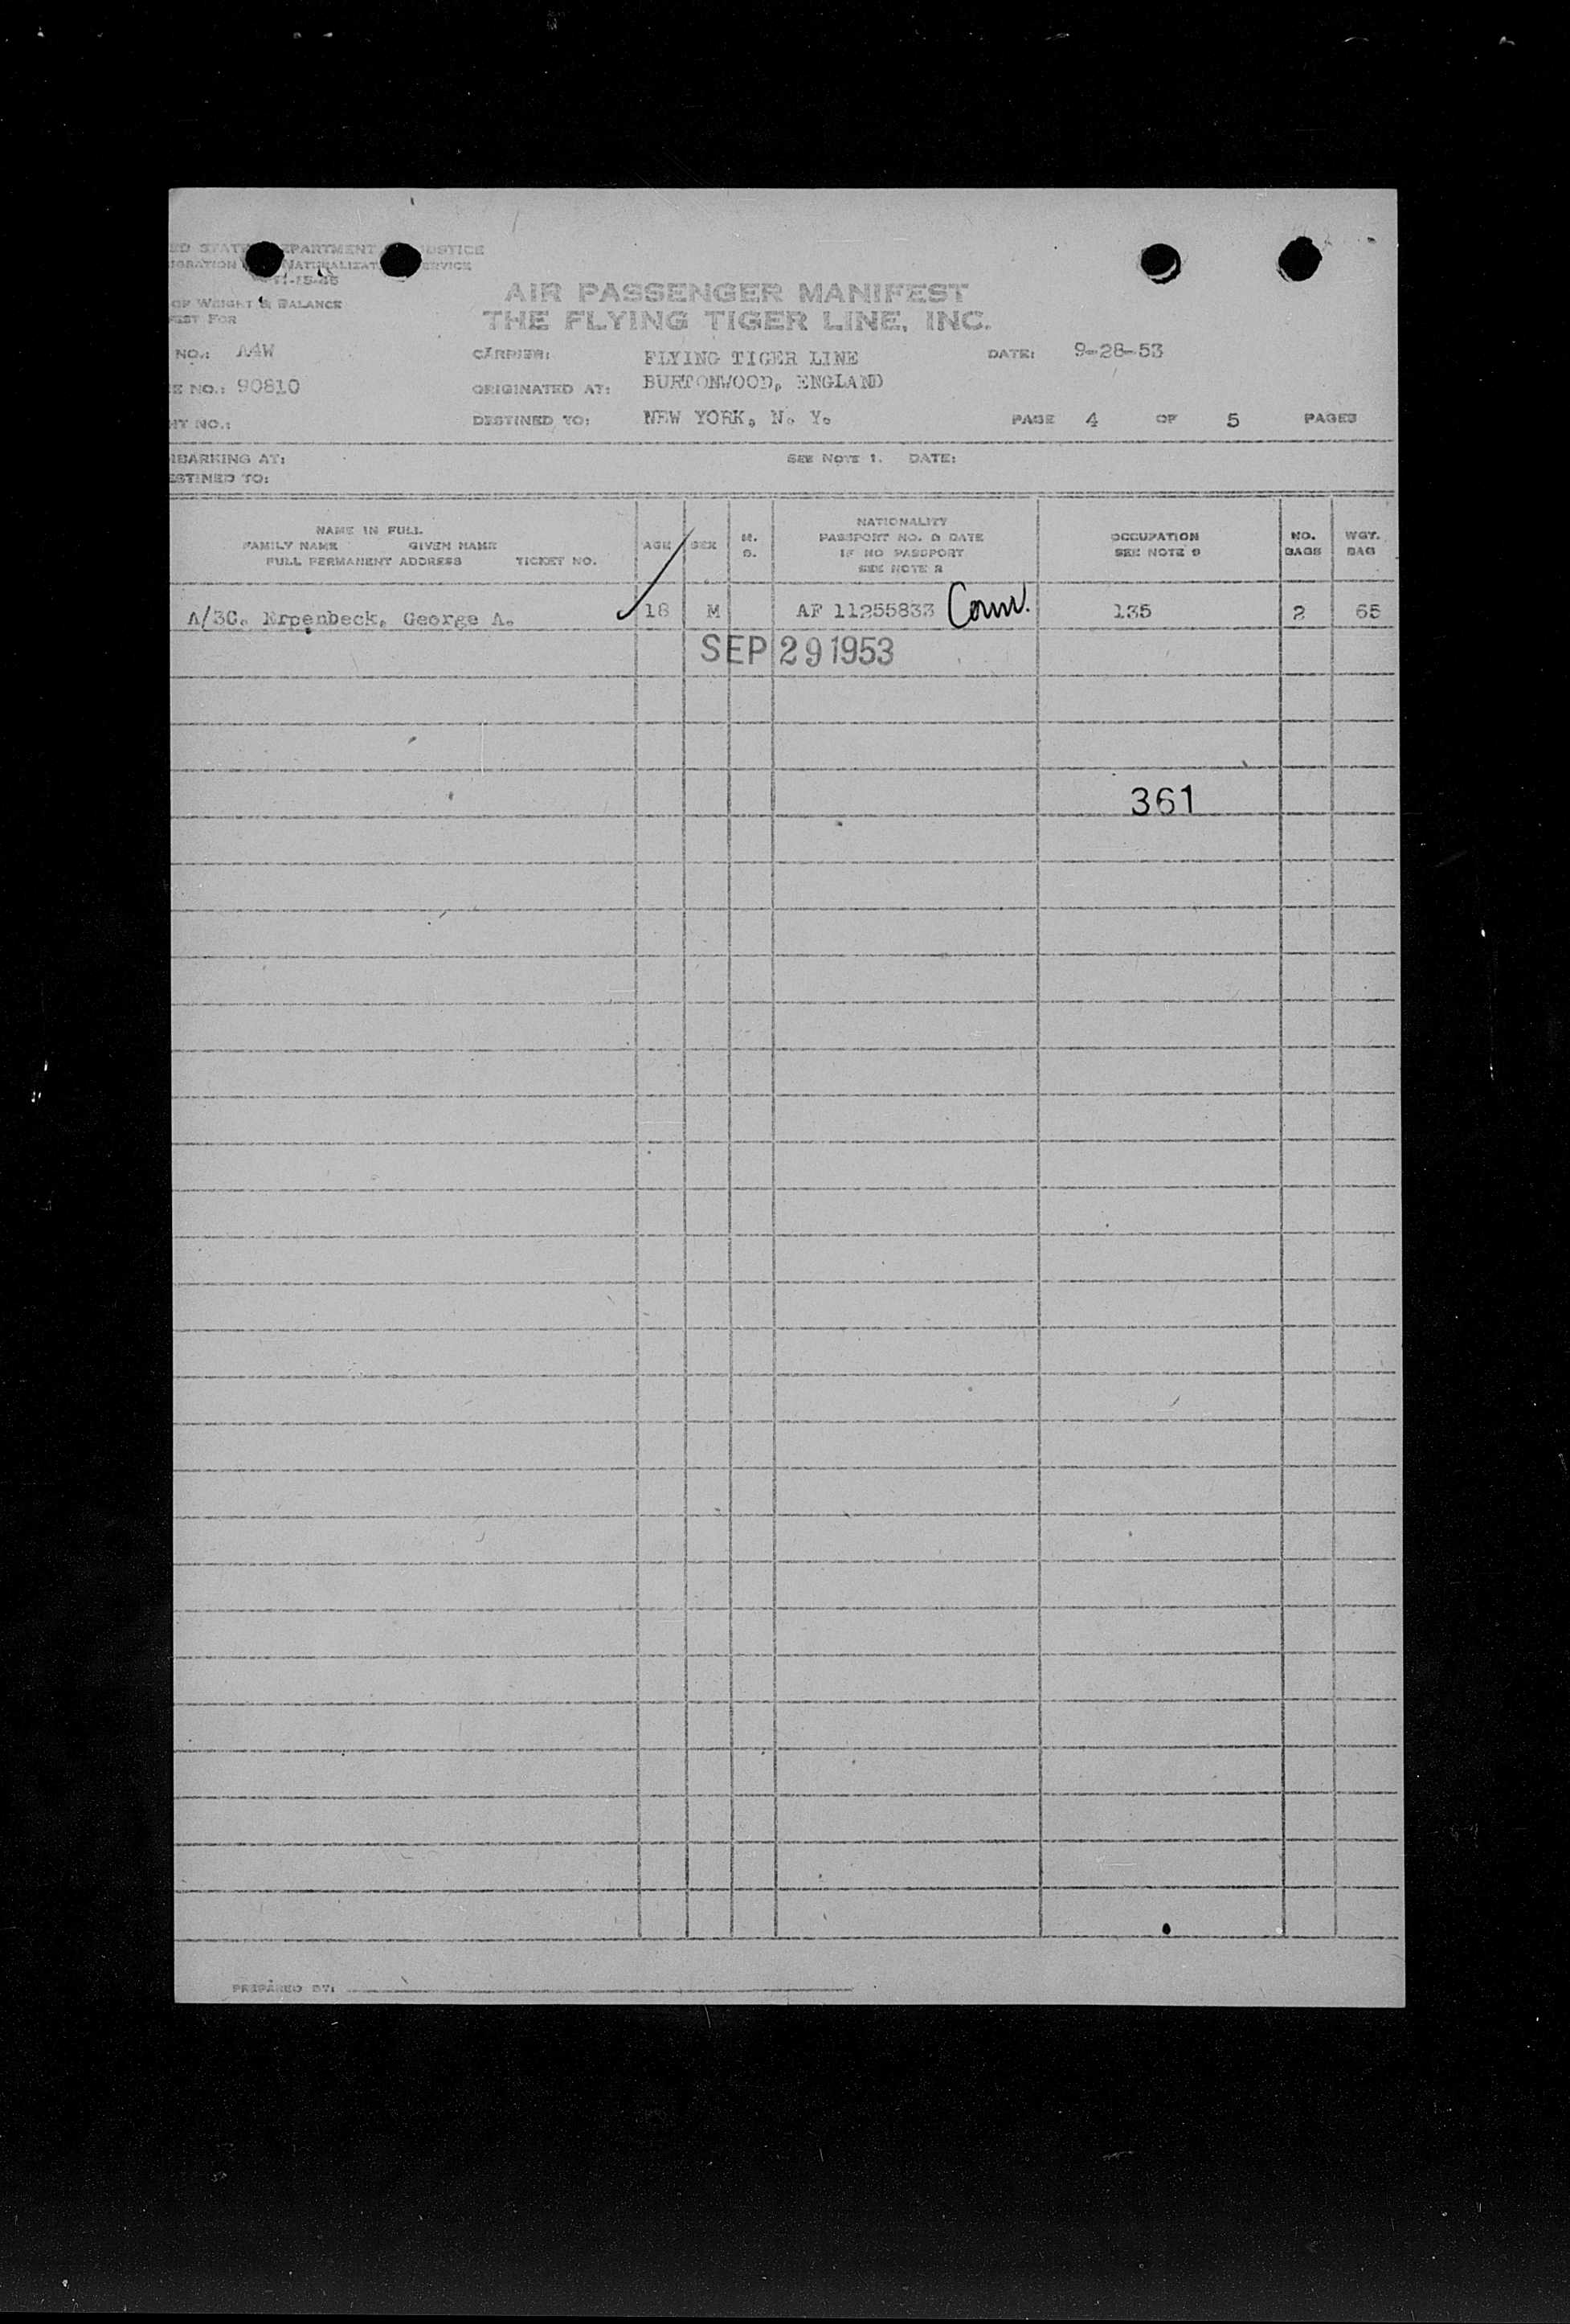 ED STAT EPARTMENT USTICE
IGRATION NATURALIZAT ERVICE
OF WEIGHT & BALANCE
FEST FOR
AIR PASSENGER MANIFEST
THE FLYING TIGER LINE, INC.
NO.: A4W CARRIER: FLYING TIGER LINE DATE: 9-28-53
E NO.: 90810 ORIGINATED AT: BURTONWOOD, ENGLAND
HT NO.: DESTINED TO: NEW YORK, N. Y. PAGE 4 OF 5 PAGES
MBARKING AT: SEE NOTE 1. DATE:
ESTINED TO:
NAME IN FULL
FAMILY NAME GIVEN NAME
FULL PERMANENT ADDRESS TICKET NO.
AGE SEX M. S.
NATIONALITY
PASSPORT NO. & DATE
IF NO PASSPORT
SEE NOTE 2
OCCUPATION
SEE NOTE 3
NO. BAGS
WGT. BAG
A/3C. Erpenbeck, George A. 18 M AF 11255833 Conn. 135 2 65
SEP 29 1953
361
PREPARED BY: